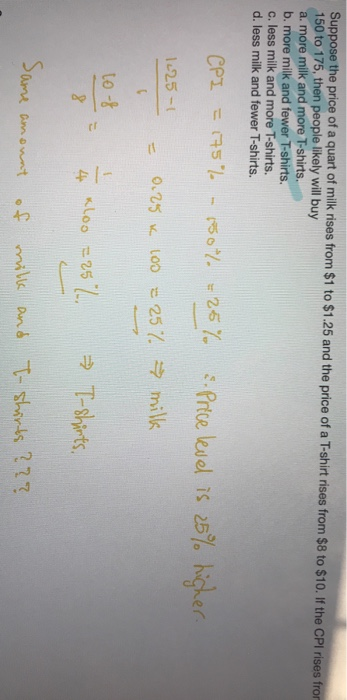 Suppose the price of a quart of milk rises from $1 to $1.25 and the price of a T-shirt rises from $8 to $10. If the CPI rises from
150 to 175, then people likely will buy
a. more milk and more T-shirts.
b. more milk and fewer T-shirts.
c. less milk and more T-shirts.
d. less milk and fewer T-shirts.
CPI = 175% - 150% = 25% ∴ Price level is 25% higher.
1.25-1
1
= 0.25 x 100 = 25% ⇒ milk
10-8
8
= 1
4
x100 = 25%. ⇒ T-Shirts.
Same amount of milk and T-Shirts???